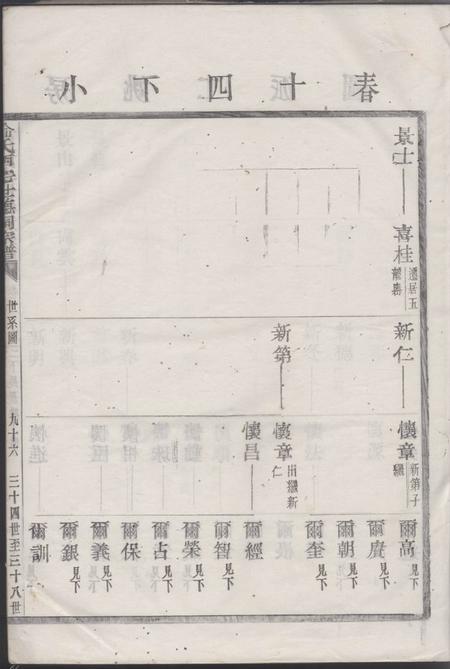 春十四下小
景士
喜桂
遷居五
新仁
懷章
新第子
繼
爾高 見下
爾賡 見下
爾朝 見下
爾奎 見下
新第
懷章
出繼新
仁
懷昌
爾經
爾智 見下
爾榮 見下
爾占 見下
爾保
爾義 見下
爾銀 見下
爾訓
世系圖
九十六
三十四世至三十八世